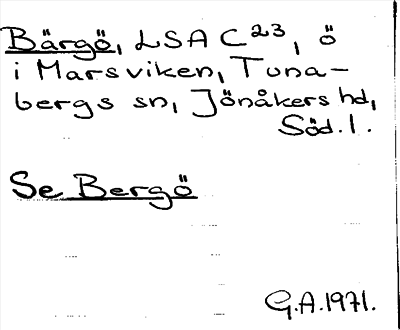 Bärgö, LSA C²³, ö
i Marsviken, Tuna-
bergs sn, Jönåkers hd,
Söd. l.
Se Bergö
G.A. 1971.